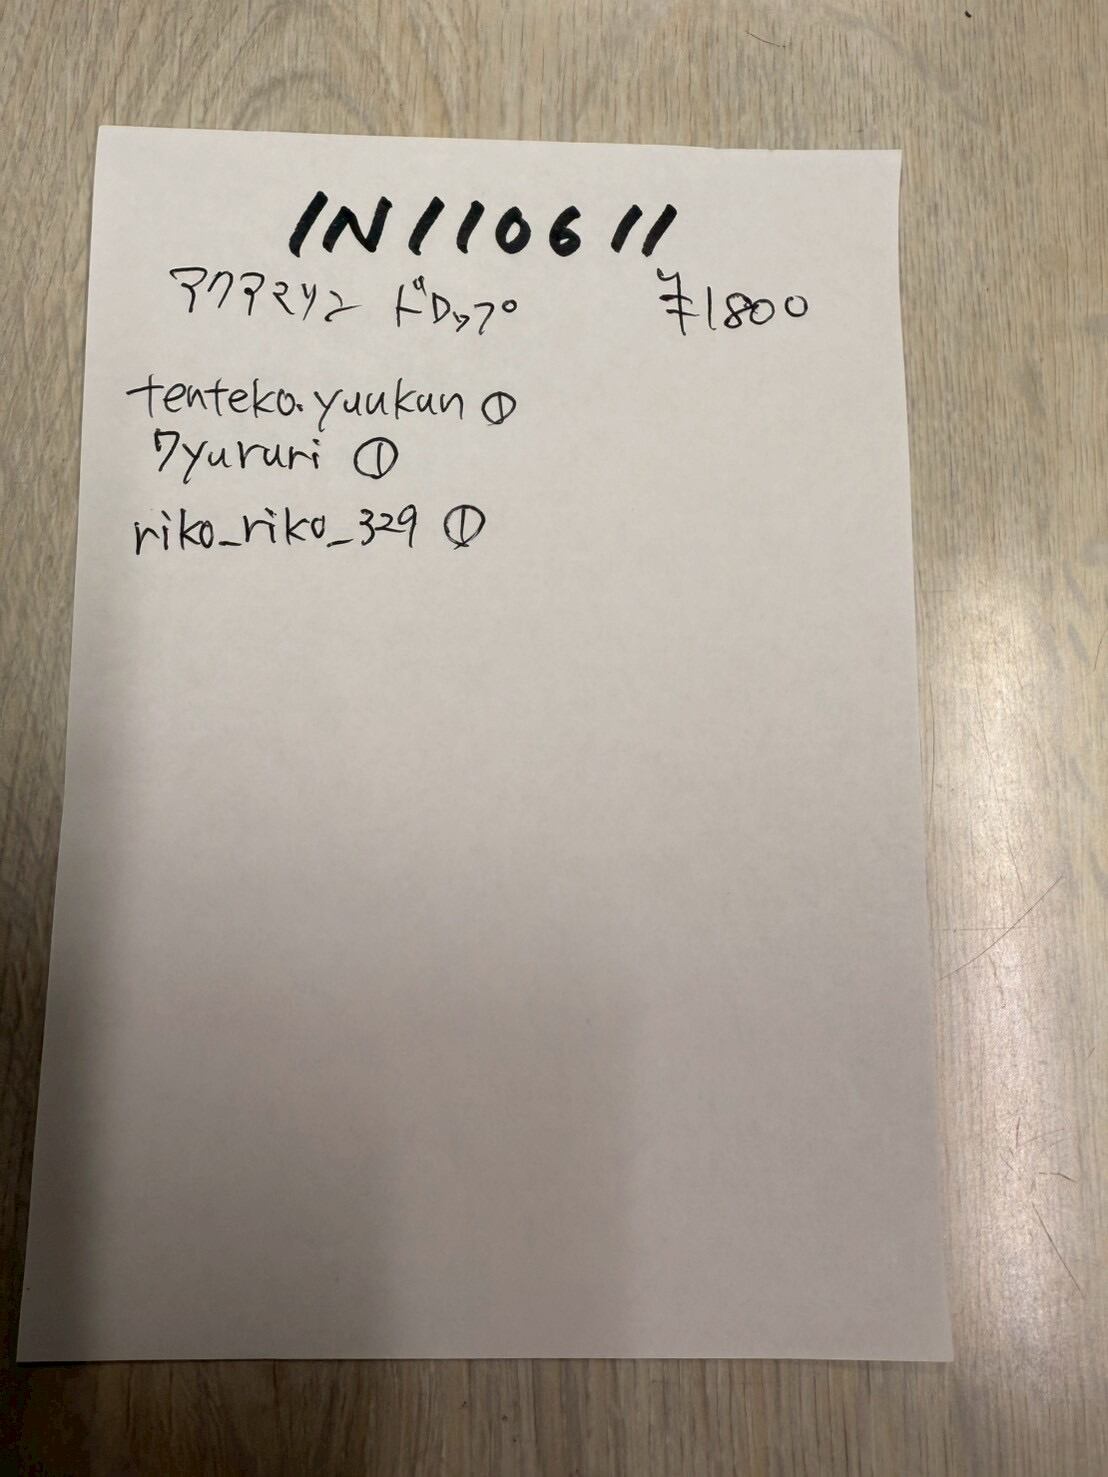 IN110611
アクアマリン ドロップ ¥1800
tenteko.yuukun ①
7yururi ①
riko_riko_329 ①